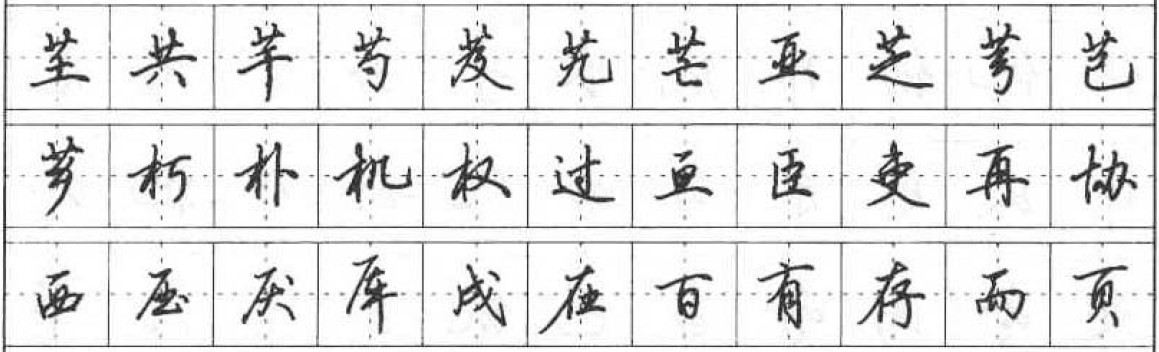 芏共芊芍芨芄芒亚芝芎芑
芗朽朴机权过亘臣吏再协
西压厌厍戌在百有存而页